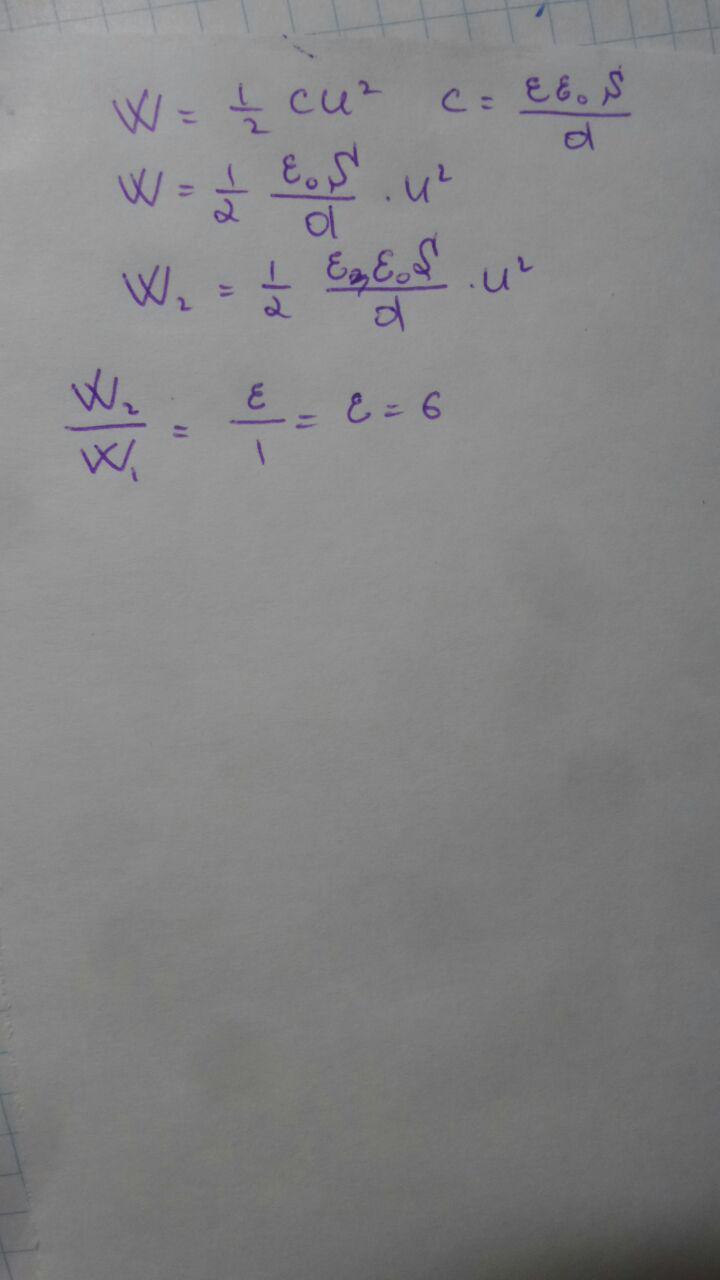 W = 1/2 CU² C = εε₀S/d
W = 1/2 ε₀S/d · U²
W₂ = 1/2 ε₂ε₀S/d · U²
W₂/W₁ = ε/1 = ε = 6